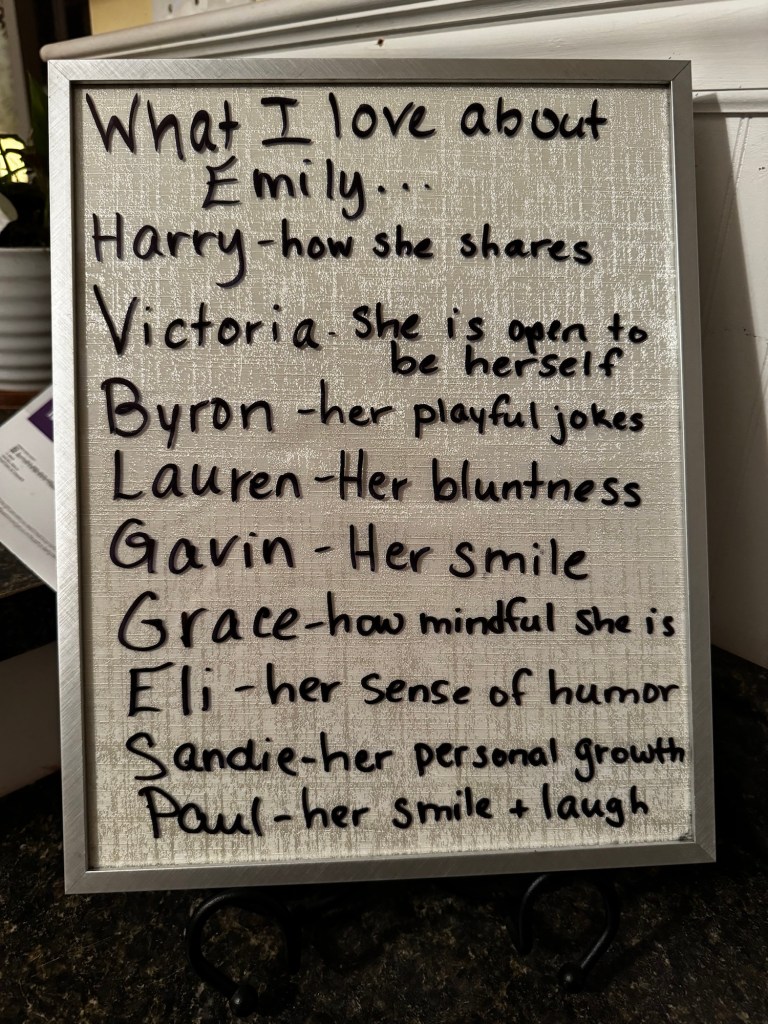 What I love about
Emily...
Harry-how she shares
Victoria- She is open to
be herself
Byron -her playful jokes
Lauren-Her bluntness
Gavin - Her smile
Grace-how mindful she is
Eli -her sense of humor
Sandie-her personal growth
Paul-her smile + laugh